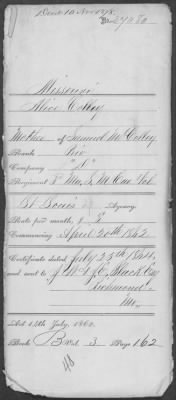 Died 10 Nov 1878.
No. 27080
Missouri
Alice Colley
Mother of Samuel M. Colley
Rank Priv
Company "A"
Regiment 8" Mo. S. M. Cav. Vol.
St Louis Agency.
Rate per month, 8
Commencing April 20th 1862
Certificate dated July 25th 1864,
and sent to J. W. & E. Black Esq
Richmond
Mo.
Act 14th July, 1862.
Book B Vol. 3 Page 162
48